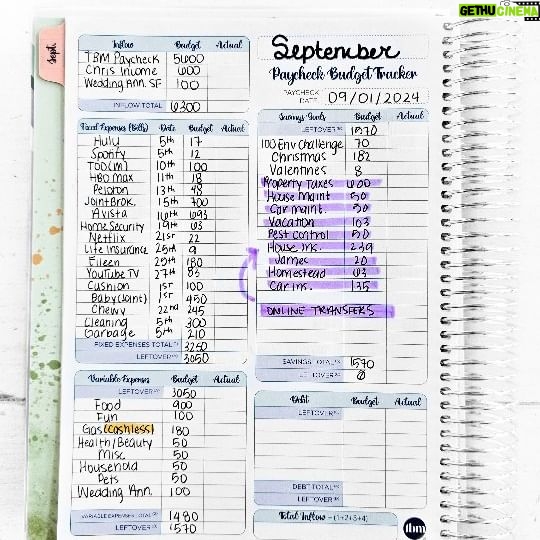 GETHUCINEMA
Sept.
Inflow Budget Actual
TBM Paycheck 5600
Chris Income 600
Wedding Ann. SF 100
INFLOW TOTAL 6300
Fixed Expenses (Bills) Date Budget Actual
Hulu 5th 17
Spotify 5th 12
TOD(M) 10th 100
HBO Max 11th 18
Peloton 13th 48
Joint Brok. 15th 700
Avista 16th 693
Home Security 19th 63
Netflix 21st 22
Life Insurance 25th 9
Eileen 25th 180
YouTube TV 27th 83
Cushion 1st 100
Baby (Joint) 1st 450
Chewy 22nd 245
Cleaning 5th 300
Garbage 5th 210
FIXED EXPENSES TOTAL 3250
LEFTOVER 3050
Variable Expenses Budget Actual
LEFTOVER 3050
Food 900
Fun 100
Gas (cashless) 180
Health/Beauty 50
Misc 50
Household 50
Pets 50
Wedding Ann. 100
VARIABLE EXPENSES TOTAL 1480
LEFTOVER 1570
September
Paycheck Budget Tracker
PAYCHECK DATE 09/01/2024
Savings Goals Budget Actual
LEFTOVER 1570
100 Env Challenge 70
Christmas 182
Valentines 8
Property Taxes 600
House Maint 50
Car maint. 50
Vacation 103
Pest Control 50
House ins. 239
James 20
Homestead 63
Car ins. 135
ONLINE TRANSFERS
SAVINGS TOTAL 1570
LEFTOVER 0
Debt Budget Actual
LEFTOVER
DEBT TOTAL
LEFTOVER
Total Inflow - (1+2+3+4)
tbm